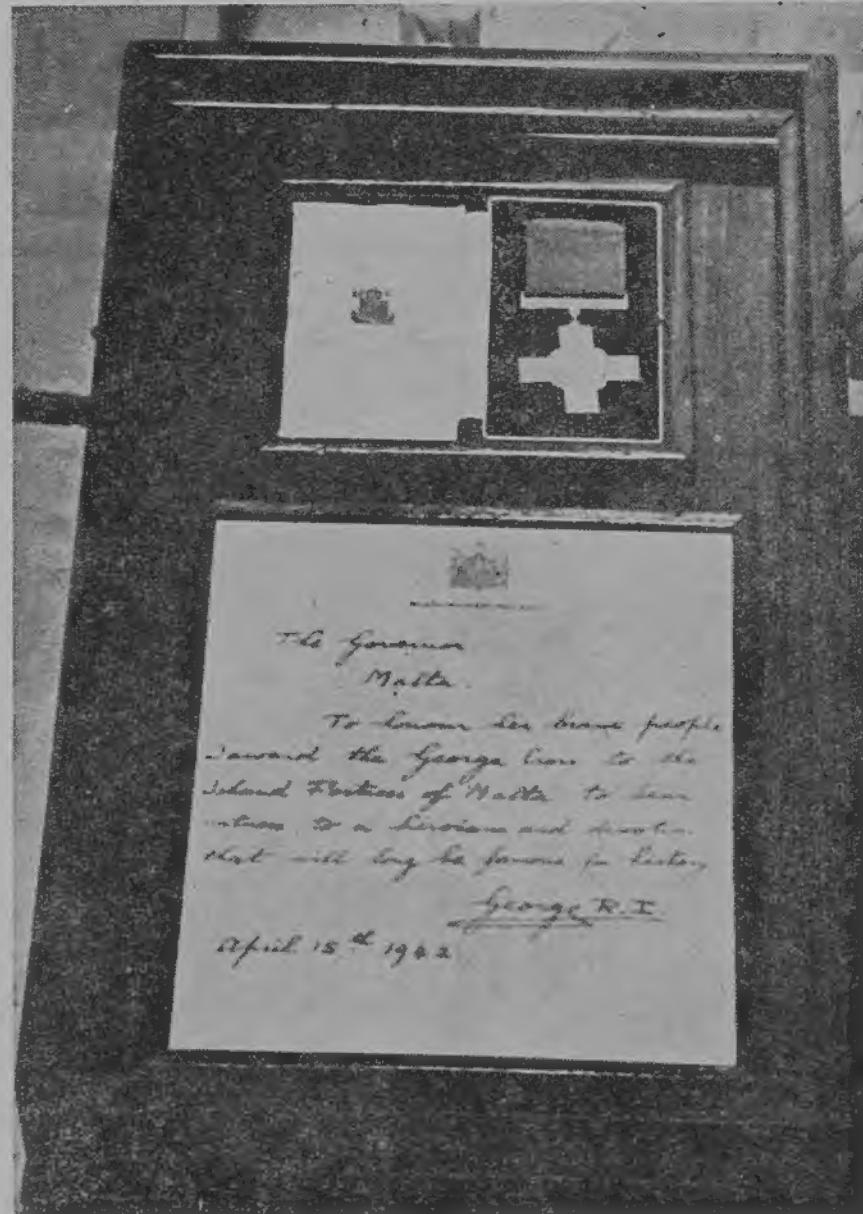 The Governor
Malta.
To honour her brave people
I award the George Cross to the
Island Fortress of Malta to bear
witness to a heroism and devotion
that will long be famous in history
George R.I.
April 15th 1942